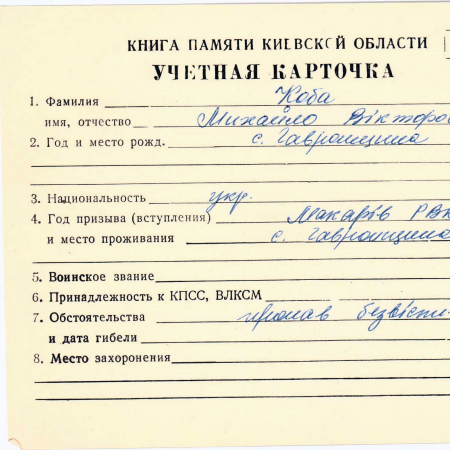 КНИГА ПАМЯТИ КИЕВСКОЙ ОБЛАСТИ
УЧЕТНАЯ КАРТОЧКА
1. Фамилия Коба
имя, отчество Михайло Вікторов
2. Год и место рожд. с. Гавронщина
3. Национальность укр.
4. Год призыва (вступления) Макарів РВК
и место проживания с. Гавронщина
5. Воинское звание
6. Принадлежность к КПСС, ВЛКСМ
7. Обстоятельства пропав безвісти
и дата гибели
8. Место захоронения